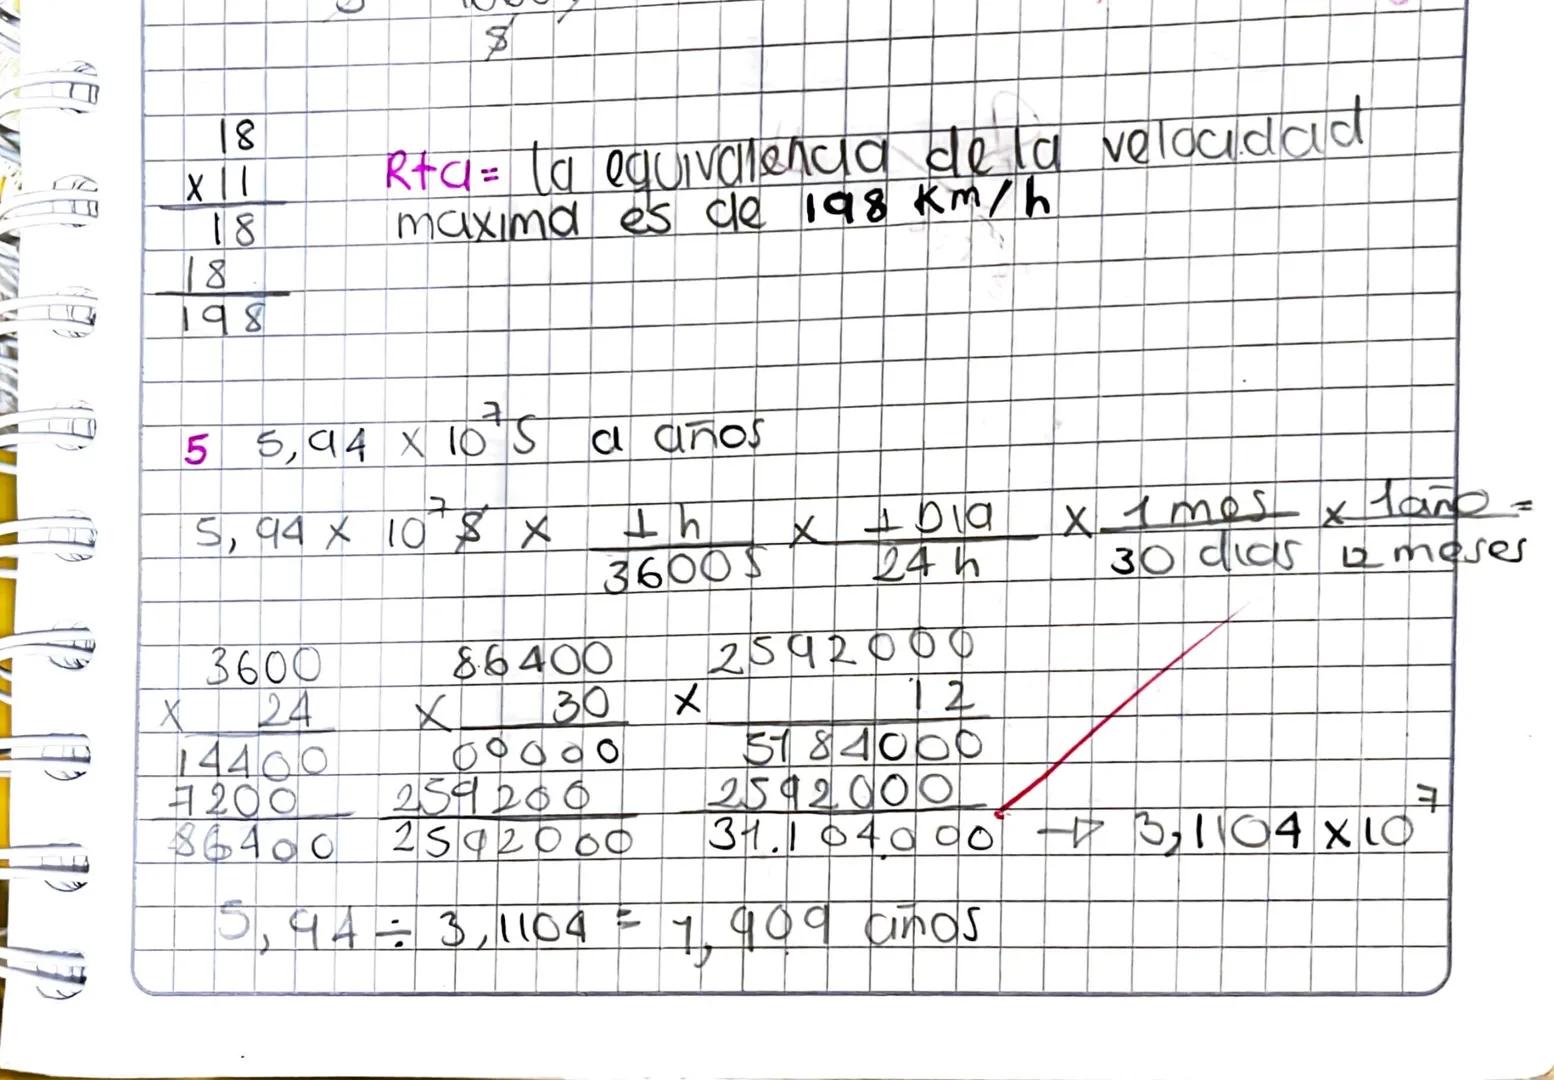 $
18
x 11
18
18
198
R+a= la equivalencia de la velocidad
maxima es de 198 Km/h
5 5,94 x 10⁷ s a años
5,94 x 10⁷ s x 1 h / 3600 s x 1 Dia / 24 h x 1 mes / 30 dias x 1 año / 12 meses =
3600
x 24
14400
7200
86400
86400
x 30
00000
259200
2592000
2592000
x 12
5184000
2592000
31.104.000 → 3,1104 x 10⁷
5,94 ÷ 3,1104 = 1,909 años